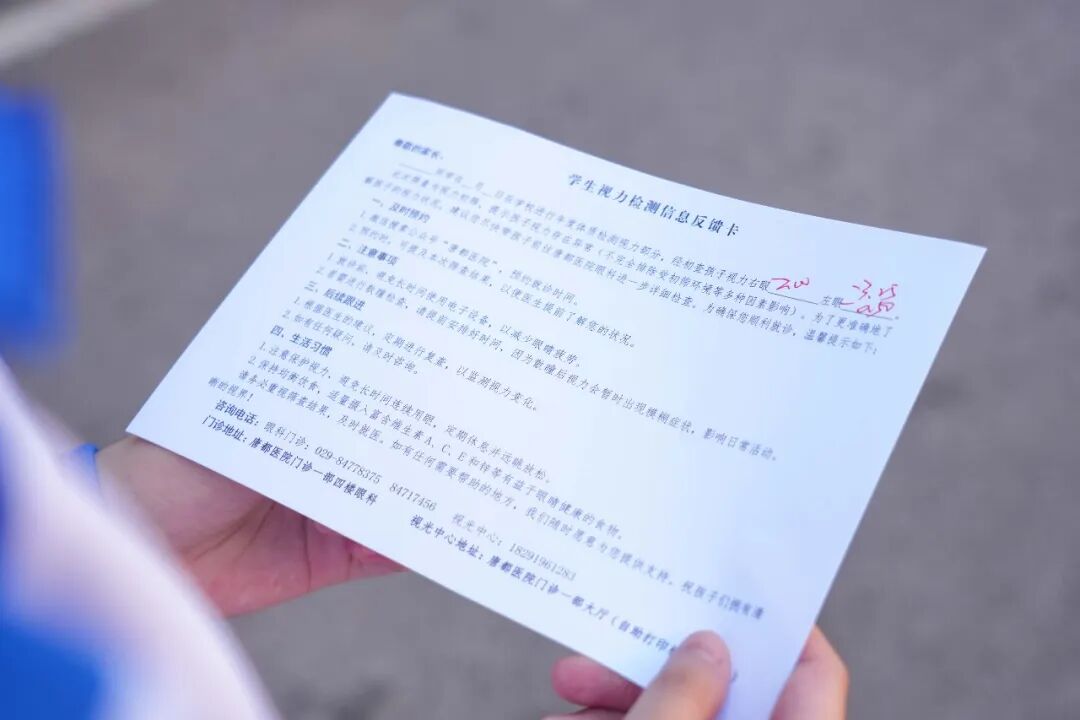 学生视力检测信息反馈卡
尊敬的家长:
月 日在学校进行年度体质检测视力部分,经初查孩子视力右眼 -2.00 左眼 -3.25 -0.50 。
此次筛查为视力初筛,提示孩子视力存在异常(不完全排除受初筛环境等多种因素影响)。为了更准确地了
解孩子的视力状况,建议您尽快带孩子前往唐都医院眼科进一步详细检查。为确保您顺利就诊,温馨提示如下:
一、及时预约
1.微信搜索公众号“唐都医院”,预约就诊时间。
2.预约时,可提及本次筛查结果,以便医生提前了解您的状况。
二、注意事项
1.就诊前,避免长时间使用电子设备,以减少眼睛疲劳。
2.若需进行散瞳检查,请提前安排好时间,因为散瞳后视力会暂时出现模糊症状,影响日常活动。
三、后续跟进
1.根据医生的建议,定期进行复查,以监测视力变化。
2.如有任何疑问,请及时咨询。
四、生活习惯
1.注意保护视力,避免长时间连续用眼,定期休息并远眺放松。
2.保持均衡饮食,适量摄入富含维生素A、C、E和锌等有益于眼睛健康的食物。
请务必重视筛查结果,及时就医。如有任何需要帮助的地方,我们随时愿意为您提供支持。祝孩子们拥有清
晰的视界!
咨询电话:眼科门诊:029-84778375 84717456 视光中心:18291961283
门诊地址:唐都医院门诊一部四楼眼科 视光中心地址:唐都医院门诊一部大厅(自助打印